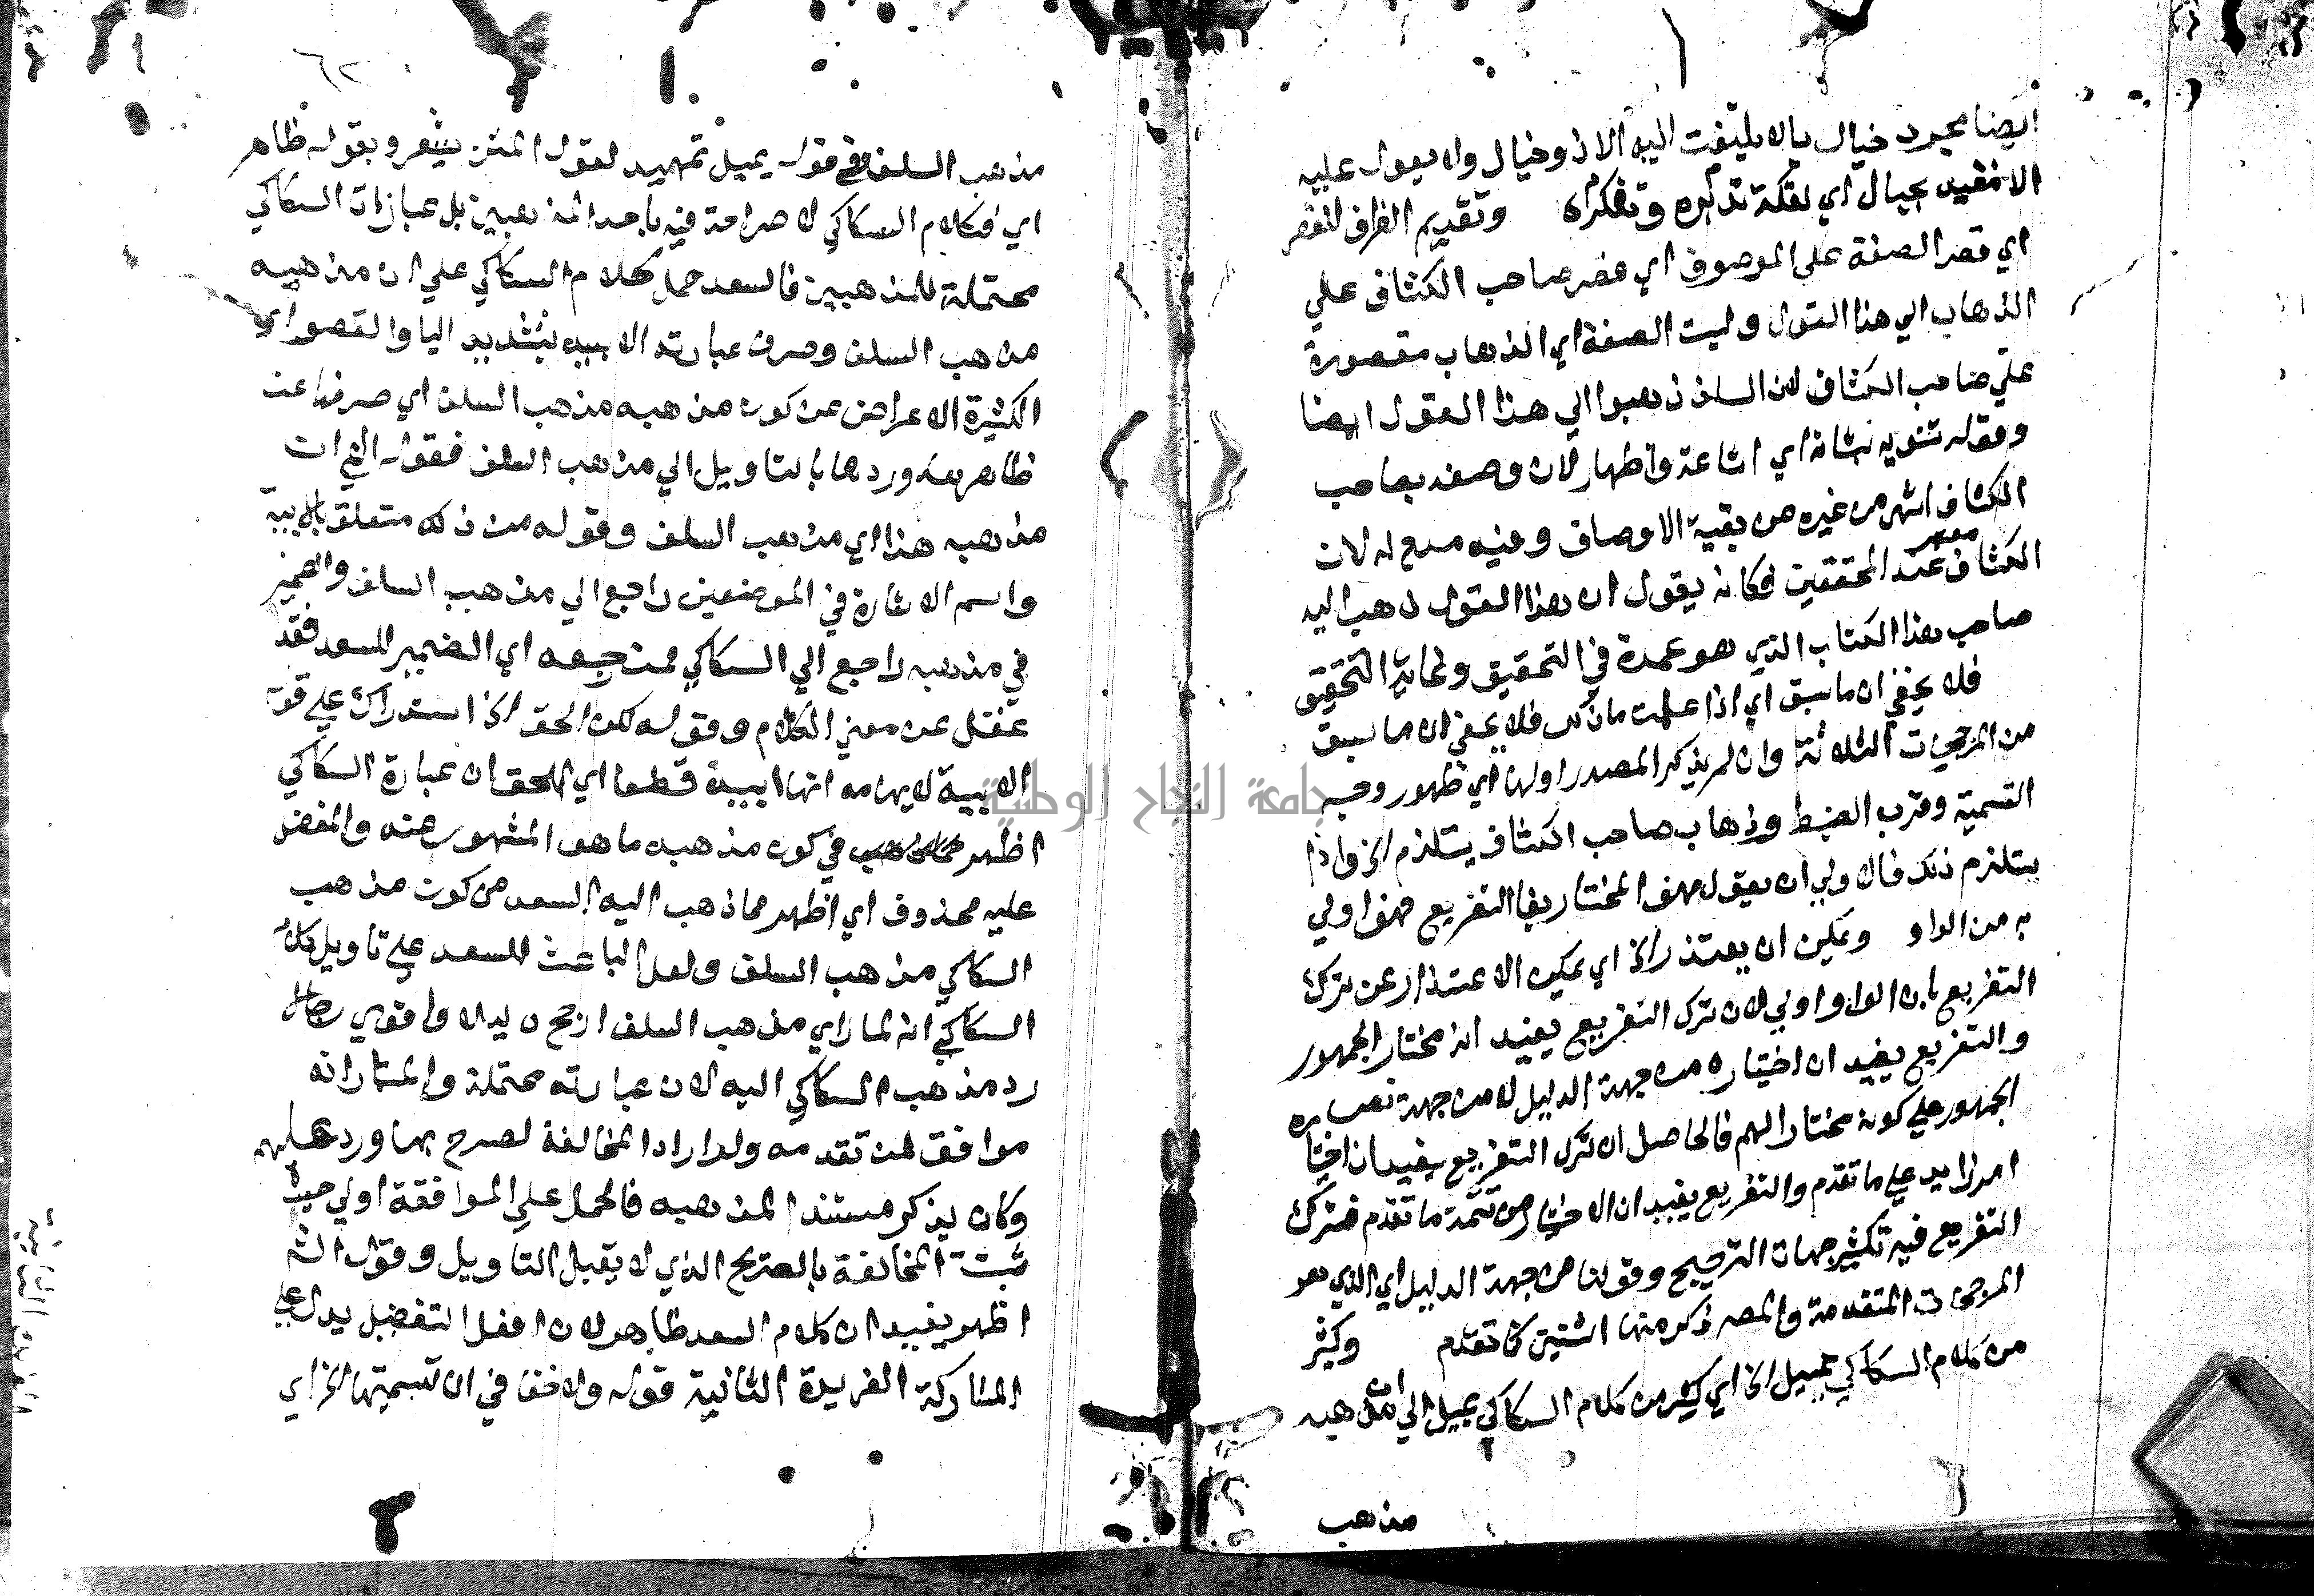 ايضا مجرد خيال بال لا يلتفت اليه الا ذو خيال ولا يعول عليه
الا مقيد بحبال اي لفكة تدبره وتفكراه وتقديم الظرف للقصر
اي قصر الصفة على الموصوف اي قصر صاحب الكشاف علي
الذهاب الي هذا القول وليت الصفة اي الذهاب مقصورة
علي صاحب الكشاف لان السلف ذهبوا الي هذا القول ايضا
وقوله تنويه بشانه اي اشاعة واظهار لان وصفه بصاحب
الكشاف اشهر من غيره من بقية الاوصاف وفيه مدح له لان
الكشاف معتبر عند المحققين فكانه يقول ان هذا القول ذهب اليه
صاحب هذا الكتاب الذي هو عمدة في التحقيق ولغاية التحقيق
فلا يخفي ان ما سبق اي اذا علمت ما ذكر فلا يخفي ان ما سبق
من المرجحات الثلاثة وان لم يذكر المصدر اولها اي ظهور وجه
التسمية وقرب الضبط وذهاب صاحب الكشاف يستلزم الخ واذا
يستلزم ذلك فالاولي ان يقول فهو المختار بفا التفريع فهو اولي
به من الواو ويمكن ان يعتذر الخ اي يمكن الاعتذار عن ترك
التفريع بان الواو اولي لان ترك التفريع يفيد انه مختار الجمهور
والتفريع يفيد ان اختياره من جهة الدليل لا من جهة نص
الجمهور علي كونه مختارا لهم فالحاصل ان ترك التفريع يفيد ان اختياره
امر زايد علي ما تقدم والتفريع يفيد ان الاختيار من تتمة ما تقدم فترك
التفريع فيه تكثير جهات الترجيح وقولنا من جهة الدليل اي الذي هو
المرجحات المتقدمة والمصه ذكر منها اثنتين كما تقدم وكثير
من كلام السكاكي يميل الخ اي كثير من كلام السكاكي يميل الي ان مذهبه
مذهب
٦٢
مذهب السلف وفي قوله يميل تمهيد لقول المتن يشعر وبقوله ظاهر
اي فكلام السكاكي لا صراحة فيه باحد المذهبين بل عبارات السكاكي
محتملة للمذهبين فالسعد حمل كلام السكاكي علي ان مذهبه
مذهب السلف وصرف عبارته الابيه بتشديد اليا والقصو اي
الكثيرة الاعراض عن كون مذهبه مذهب السلف اي صرفها عن
ظاهرها وردها بالتاويل الي مذهب السلف فقوله الخ ان
مذهبه هذا اي مذهب السلف وقوله من ذلك متعلق بالابية
واسم الاشارة في الموضعين راجع الي مذهب السلف والضمير
في مذهبه راجع الي السكاكي فمن جعله اي الضمير للسعد فقد
غفل عن معني الكلام وقوله لكن الحق الخ استدراك علي قوله
الابية لايهامه انها ابية قطعا اي الحق ان عبارة السكاكي
اظهر في كون مذهبه ما هو المشهور عنه والمفضل
عليه محذوف اي اظهر مما ذهب اليه السعد من كون مذهب
السكاكي مذهب السلف ولعل الباعث للسعد علي تاويل كلام
السكاكي انه لما راي مذهب السلف ارجح دليلا واقوي رجالا
رد مذهب السكاكي اليه لان عبارته محتملة والمختار انه
موافق لمن تقدمه ولو اراد المخالفة لصرح بها ورد عليهم
وكان يذكر مستندا لمذهبه فالحمل علي الموافقة اولي حيث
ثبت المخالفة بالصريح الذي لا يقبل التاويل وقول الش
اظهر يفيد ان كلام السعد ظاهر لان افعل التفضيل يدل علي
المشاركة الفريدة الثانية قوله ولا خفا في ان تسميتها الخ اي
جامعة النجاح الوطنية